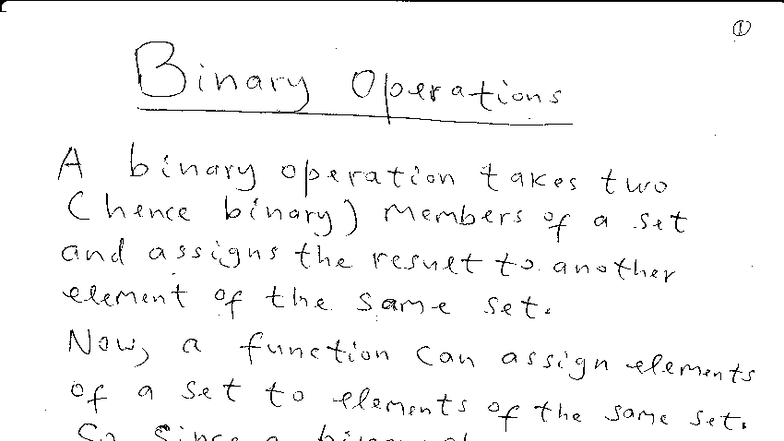 ①
Binary Operations
A binary operation takes two
(hence binary) members of a set
and assigns the result to another
element of the same set.
Now, a function can assign elements
of a set to elements of the same set.
So since a